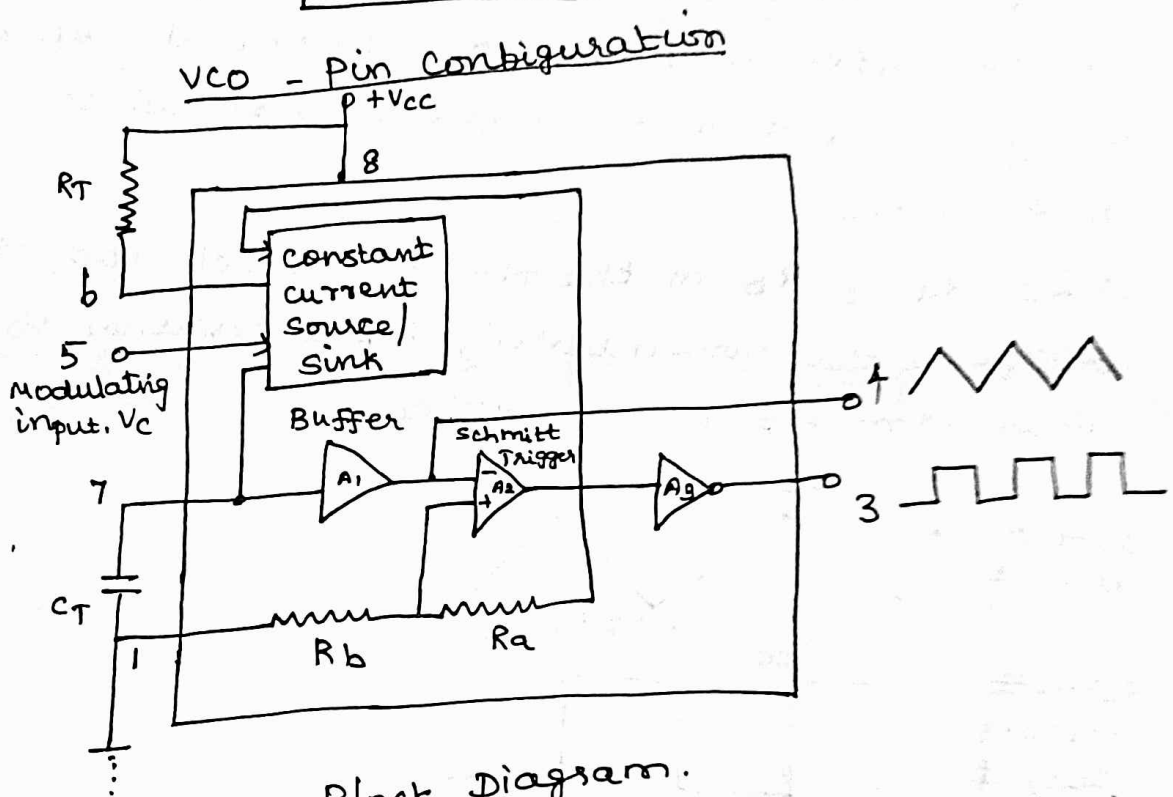 VCO - Pin Conbiguration
+VCC
8
RT
6
constant
current
source/
sink
5
Modulating
input, VC
Buffer
Schmitt
Trigger
4
7
A1
-
A2
+
3
CT
Rb
Ra
1
Diagram.